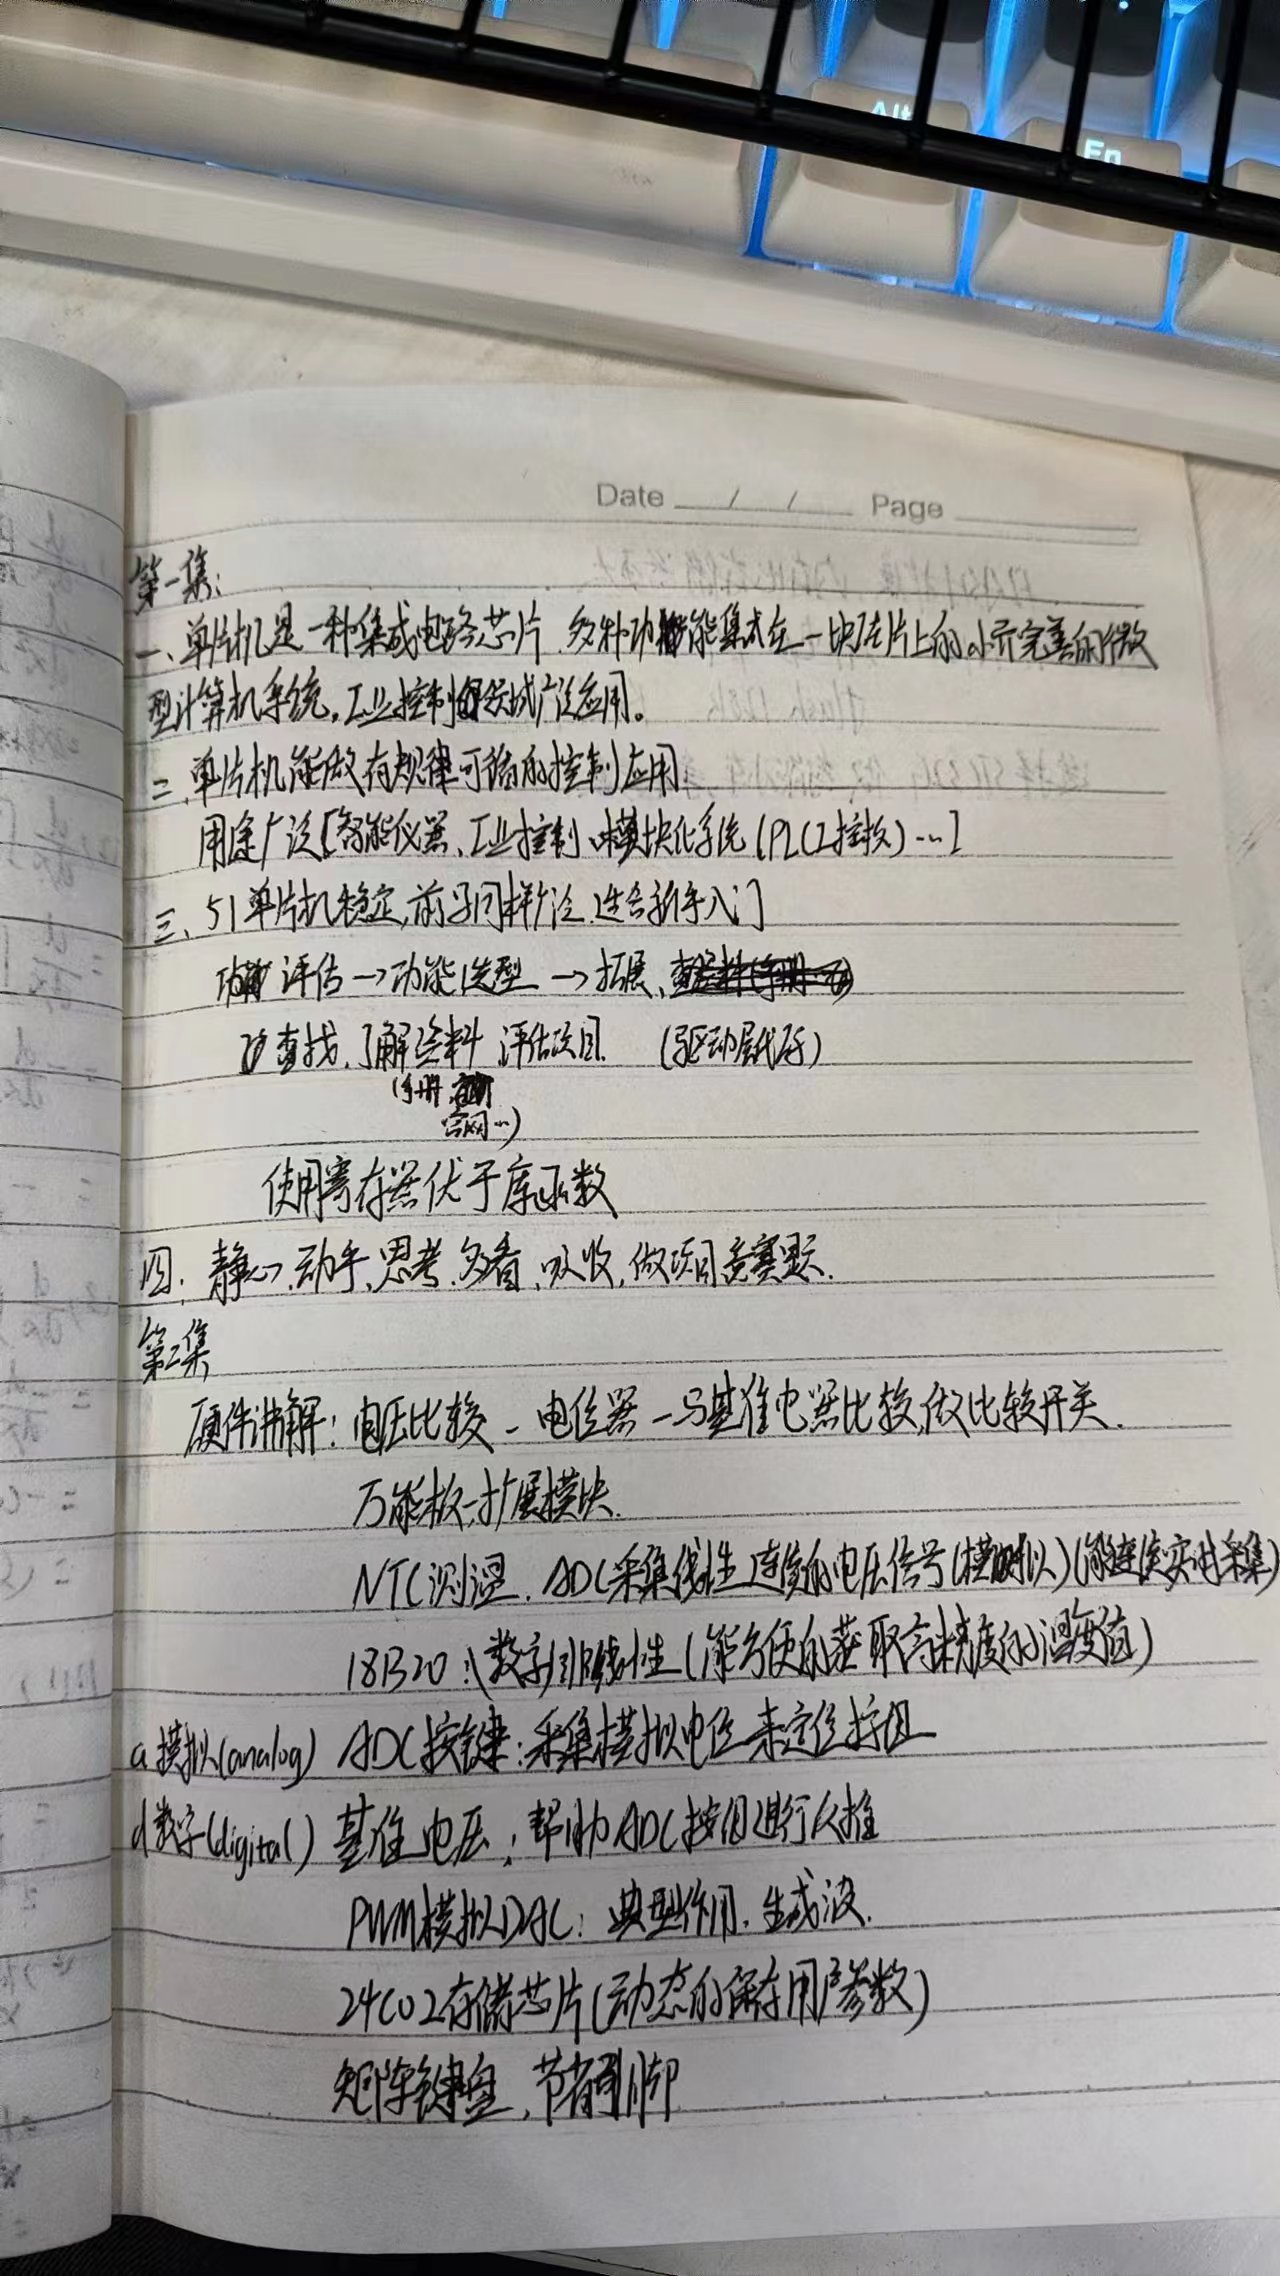 Alt
Fn
Date / / Page
第一集:
一、单片机是一种集成电路芯片,多种功能集成在一块硅片上的小而完善的微
型计算机系统,工业控制领域广泛应用。
二、单片机能做有规律可循的控制应用
用途广泛[智能仪器、工业控制、模块化系统(PLC工控板)…]
三、51单片机稳定,前景同样广泛,适合新手入门
功能评估→功能选型→拓展、
查找,了解资料 评估项目 (驱动层代码)
(手册
官网…)
使用寄存器优于库函数
四、静心、动手、思考、多看、吸收,做项目竞赛题.
第二集
硬件讲解:电压比较-电位器-与基准电器比较,做比较开关.
万能板-扩展模块.
NTC测温.ADC采集线性连续的电压信号(模拟)(能连续实时采集)
18B20:(数字)非线性(能方便的获取高精度的温度值)
a模拟(analog) ADC按键:采集模拟电位来定位按钮
d数字(digital) 基准电压;帮助ADC按钮进行反推
PWM模拟DAC:典型作用.生成波.
24C02存储芯片(动态的保存用户参数)
矩阵键盘,节省引脚